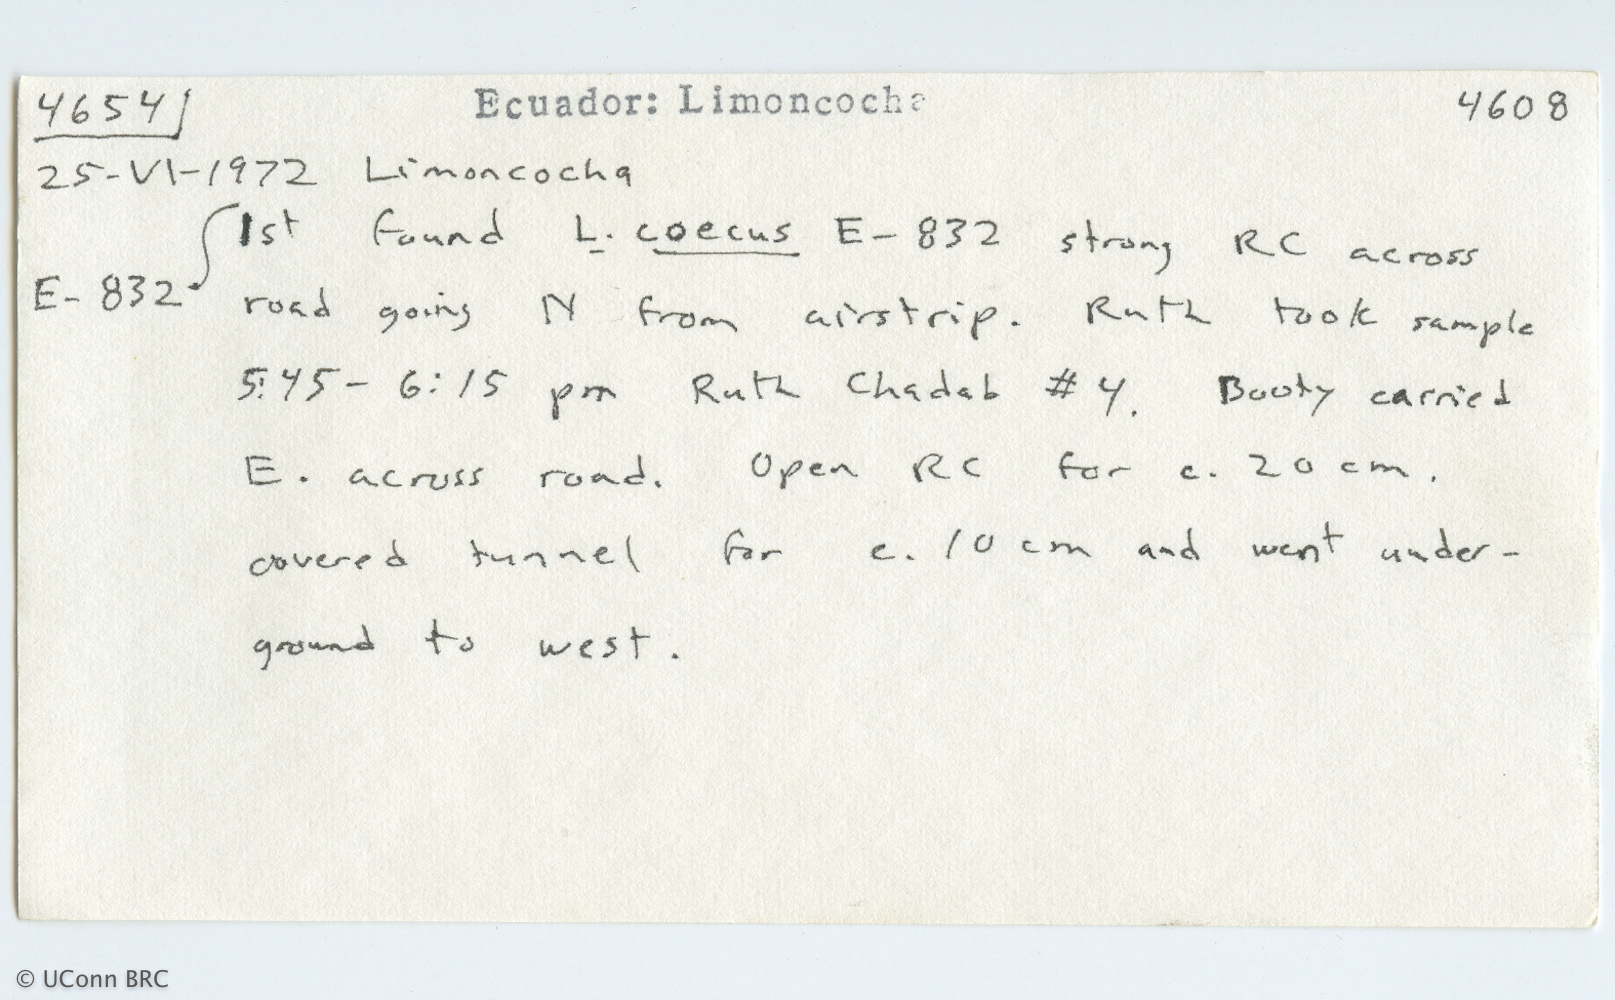 4654 Ecuador: Limoncocha 4608
25-VI-1972 Limoncocha
1st found L. coecus E-832 strong RC across
E-832 road going N from airstrip. Ruth took sample
5:45-6:15 pm Ruth Chadab #4. Booty carried
E. across road. Open RC for c. 20 cm.
covered tunnel for c. 10 cm and went under-
ground to west.
© UConn BRC